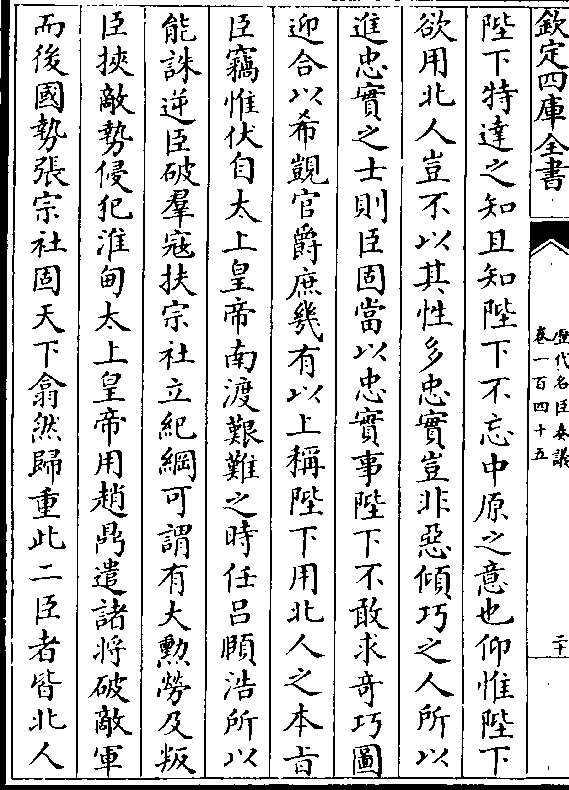 欽定四庫全書
歴代名臣奏議
卷一百四十五
二十
陛下特達之知且知陛下不忘中原之意也仰惟陛下
欲用北人豈不以其性多忠實豈非惡傾巧之人所以
進忠實之士則臣固當以忠實事陛下不敢求竒巧圖
迎合以希覬官爵庶幾有以上稱陛下用北人之本㫖
臣竊惟伏自太上皇帝南渡艱難之時任吕頥浩所以
能誅逆臣破羣寇扶宗社立紀綱可謂有大勲勞及叛
臣挾敵勢侵犯淮甸太上皇帝用趙鼎遣諸将破敵軍
而後國勢張宗社固天下翕然歸重此二臣者皆北人